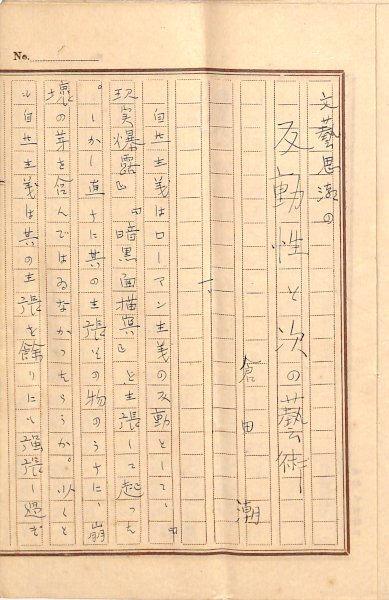 No.
文藝思潮の
反動性と次の藝術
倉田潮
一、
自然主義はローマン主義の反動として、『
現実爆露』『暗黒面描寫』と主張して起つた
。しかし直ちに其の主張その物のうちに、崩
壊の芽を含んではゐなかつたらうか。少くと
も自然主義は其の主張を餘りにも强張し過ぎ